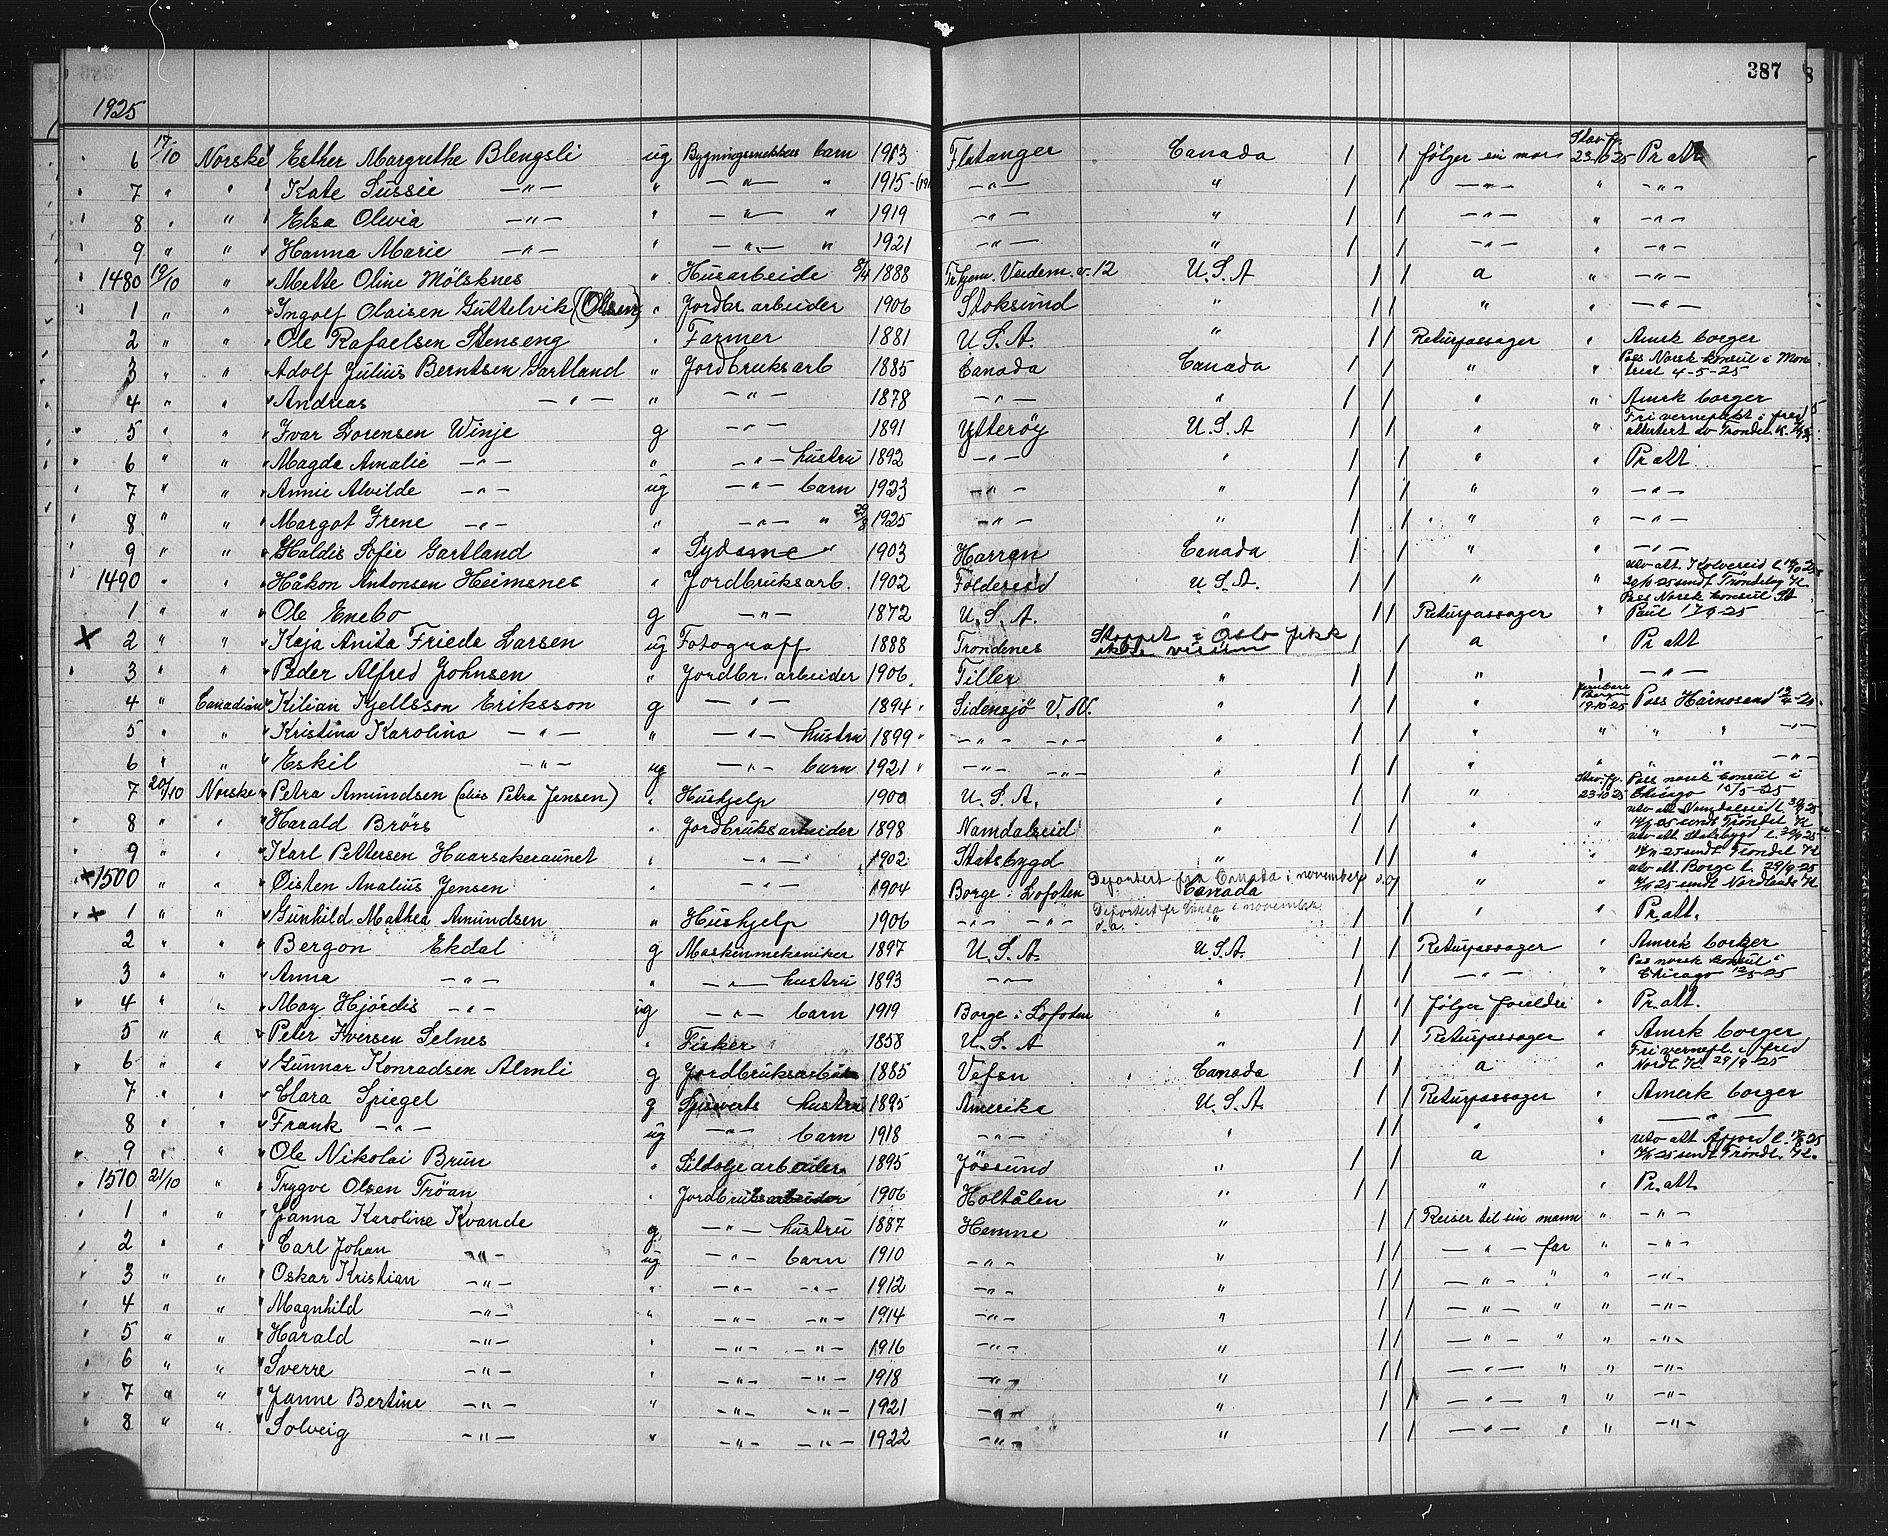 387
1925
6 17/10 Norske Esther Margrethe Blengsli ug Bygningssnekkers barn 1913 Flatanger Canada / / følger sin mor Stav.fj. 23-10-25 Pr att
7 " " Kate Sussie —"— " —"— " 1915 —"— " / / —"— " —"—
8 " " Elsa Olivia —"— " —"— " 1919 —"— " / / —"— " —"—
9 " " Hanna Marie —"— " —"— " 1921 —"— " / / —"— " —"—
1480 19/10 " Mette Oline Mölsknes " Husarbeide 1888 Trhjem 12 U.S.A / / a " —"—
1 " " Ingolf Olaisen Guttelvik (Olsen) " Jordbr. arbeider 1906 Stoksund " / / " " —"—
2 " " Ole Rafaelsen Stenseng " Farmer 1881 U.S.A. " / / Returpassager " Amrk borger
3 " " Adolf Julius Berntsen Gartland " Jordbruksarb 1885 Canada Canada / / " " Pass Norsk konsul i Montreal 4-5-25
4 " " Andreas —"— " —"— 1878 —"— " / / " " Amrk borger
5 " " Ivar Lorensen Winje g —"— 1891 Ytterøy U.S.A / / " " Fri vernepligt i fred attertert av Trondel. K.
6 " " Magda Amalie —"— " —"— hustru 1892 —"— " / / " " Pr att
7 " " Annie Alvilde —"— ug —"— barn 1923 —"— " / / " " —"—
8 " " Margot Irene —"— " —"— " 29/8 1925 —"— " / / " " —"—
9 " " Haldis Sofie Gartland " Sydame 1903 Harran Canada / / " " —"—
1490 " " Håkon Antonsen Heimsnes " Jordbruksarb. 1902 Foldereid U.S.A. / / " " utv att. Kolvereid sendt Trøndelag K
1 " " Ole Enebo g —"— 1872 U.S.A. " / / Returpassager " Pass Norsk konsul St Paul 17/9-25
X 2 " " Kaja Anita Friede Larsen ug Fotograff 1888 Trondenes Stoppet i Oslo fikk ikke visum / / a " Pr att
3 " " Peder Alfred Johnsen " Jordbr. arbeider 1906 Tiller " / / " " —"—
4 " Canadian Kilian Kjellsson Eriksson g —"— 1894 Sidensjö V.N. " / / " Bergen 19-10-25 Pass Härnosand
5 " " Kristina Karolina —"— " —"— hustru 1899 —"— —"— " / / " " " " —"—
6 " " Eskil —"— ug —"— barn 1921 —"— —"— " / / " " " " —"—
7 20/10 Norske Petra Amundsen (alias Petra Jensen) " Hushjelp 1900 U.S.A. " / / " Stav.fj. 23-10-25 Pass norsk konsul i Chicago 15/5-25
8 " " Harald Brörs " Jordbruksarbeider 1898 Namdalseid " / / " " utv att Namdalseid sendt Tröndel K
9 " " Karl Pettersen Haarsakeraunet " —"— 1902 Stadsbygd " / / " " utv att Stadsbygd sendt Trøndel K
X 1500 " " Øisten Analius Jensen " —"— 1904 Borge i Lofoten Deportert fra Canada i november d.a. Canada " " utv att. Borge L. 29/9-25 sendt Nordlands K
X 1 " " Gunhild Mathea Amundsen " Hushjelp 1906 —"— —"— Deportert fr Canada i november d.a. / / " " Pr.att.
2 " " Bergon Ekdal g Maskinmekaniker 1897 U.S.A. U.S.A. / / Returpassager " Amerk borger
3 " " Anna —"— " —"— hustru 1893 —"— " / / —"— " Pas norsk konsul i Chicago 12/5-25
4 " " May Hjördis —"— ug —"— barn 1919 Borge i Lofoten " / / følger foreldre " Pr.att.
5 " " Peter Iversen Selnes " Fisker 1858 U.S.A " / / Returpassager " Amrk borger
6 " " Gunnar Konradsen Almli g Jordbruksarbeider 1885 Vefsn Canada / / a " Fri vernepl. i fred Nordl. K. 29/9-25
7 " " Clara Spiegel g hustru 1895 Amerika U.S.A. / / Returpassager " Amerk borger
8 " " Frank —"— ug —"— barn 1918 —"— " / / " " —"—
9 " " Ole Nikolai Brun " Sildoljearbeider 1895 Jössund " / / a " utv att Åfjord sendt Trøndl. K.
1510 21/10 " Trygve Olsen Tröan " Jordbruksarbeider 1906 Holtålen " / / " " Pr.att
1 " " Janna Karoline Kvande g —"— hustru 1887 Hemne " / / Reiser til sin mann " —"—
2 " " Carl Johan —"— ug —"— barn 1910 —"— " / / —"— far " —"—
3 " " Oskar Kristian —"— " —"— —"— 1912 —"— " / / —"— " " —"—
4 " " Magnhild —"— " —"— —"— 1914 —"— " / / —"— " " —"—
5 " " Harald —"— " —"— —"— 1916 —"— " / / —"— " " —"—
6 " " Sverre —"— " —"— —"— 1918 —"— " / / —"— " " —"—
7 " " Janne Bertine —"— " —"— —"— 1921 —"— " / / —"— " " —"—
8 " " Solveig —"— " —"— —"— 1922 —"— " / / —"— " " —"—